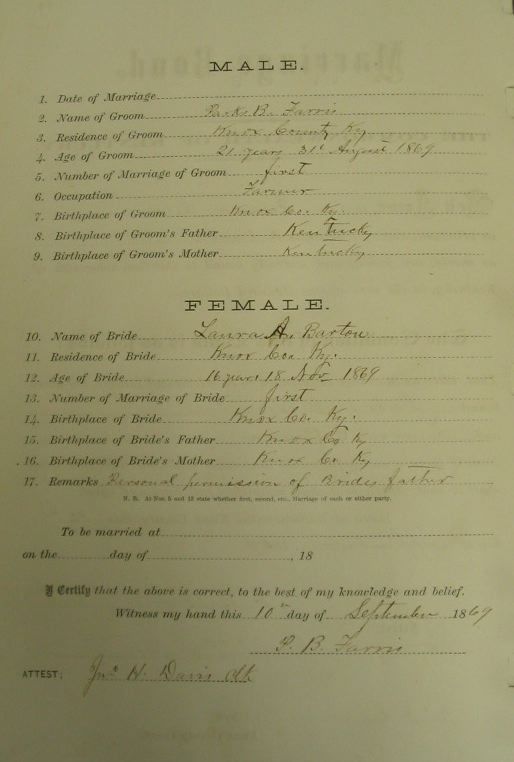 MALE.
1. Date of Marriage
2. Name of Groom Parks B. Farris
3. Residence of Groom Knox County Ky
4. Age of Groom 21 years 31st August 1869
5. Number of Marriage of Groom first
6. Occupation Farmer
7. Birthplace of Groom Knox Co. Ky.
8. Birthplace of Groom's Father Kentucky
9. Birthplace of Groom's Mother Kentucky
FEMALE.
10. Name of Bride Laura A. Barton
11. Residence of Bride Knox Co. Ky.
12. Age of Bride 16 years 18 Nov 1869
13. Number of Marriage of Bride first
14. Birthplace of Bride Knox Co. Ky.
15. Birthplace of Bride's Father Knox Co Ky
16. Birthplace of Bride's Mother Knox Co Ky
17. Remarks Personal permission of Brides father
N. B. At Nos. 5 and 13 state whether first, second, etc., Marriage of each or either party.
To be married at
on the day of , 18
I Certify that the above is correct, to the best of my knowledge and belief.
Witness my hand this 10th day of September 1869
P. B. Farris
ATTEST; Jno H. Davis Clk